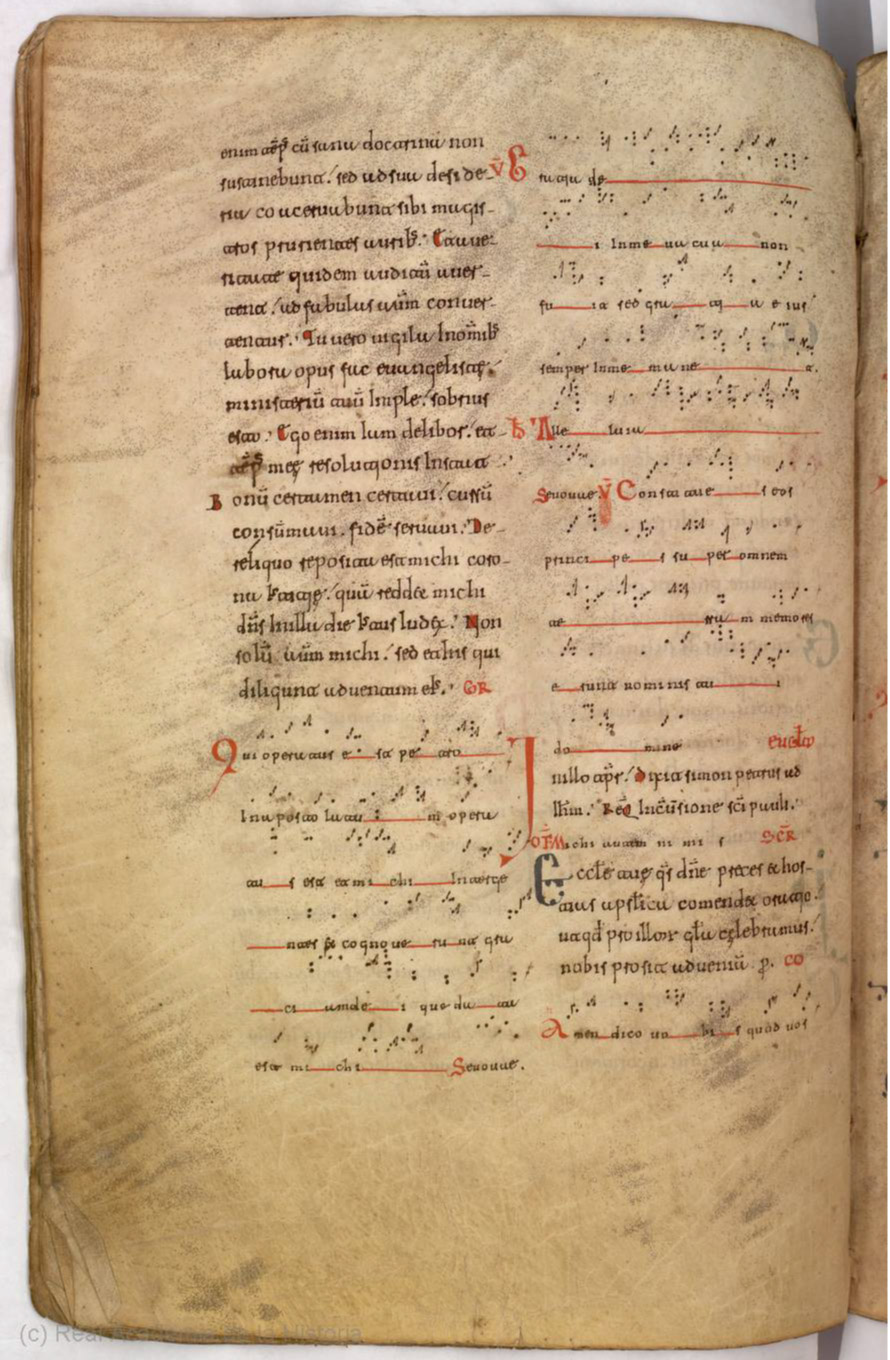 enim tēp̄ cū sana doctrina non
sustinebunt. sed ad sua deside-
ria coacervabunt sibi magis-
tros prurientes aurib;. Ea ave-
ritate quidem auditū aver-
tent. ad fabulas aūm conver-
tentur. Tu vero vigila In omīb;
labora opus fac evangelistę.
ministeriū tuū Imple. sobrius
esto. Ego enim Iam delibor. et
tēp̄ meę resolutionis Instat.
Bonū certamen certavi. cursū
consūmavi. fidē servavi. De
reliquo reposita est michi coro-
na Iusticię. quā reddet michi
dn̄s In illa die Iustus Iudex. Non
solū aūm michi. sed et his qui
diligunt adventum ei;. GR
Qui operatus est petro
In apostolatu opera
tus est et michi Inter ge
ntes et cognoverunt gra
ciam dei que data
est michi Seuouae.
V̄ Gratia de
i In me vacua non
fuit sed gratia eius
semper In me manet.
Alleluia
Seuouae V̄ Constitues eos
principes super omnem
terram memores
erunt nominis tui
domine evḡlm
In illo tp̄r. Dixit simon petrus ad
Ihm. Req̄ In cc̄usione sc̄i pauli.
OF̄ Michi autem nimis SCR̄
Eccl̄e tuę q̄s dn̄e preces et hos-
tias apostl̄ica comendet oratio.
ut qd̄ pro illor gl̄a cęlebramus.
nobis prosit ad veniā. p. CO
Amen dico vobis quod vos
(c) Real Academia de la Historia